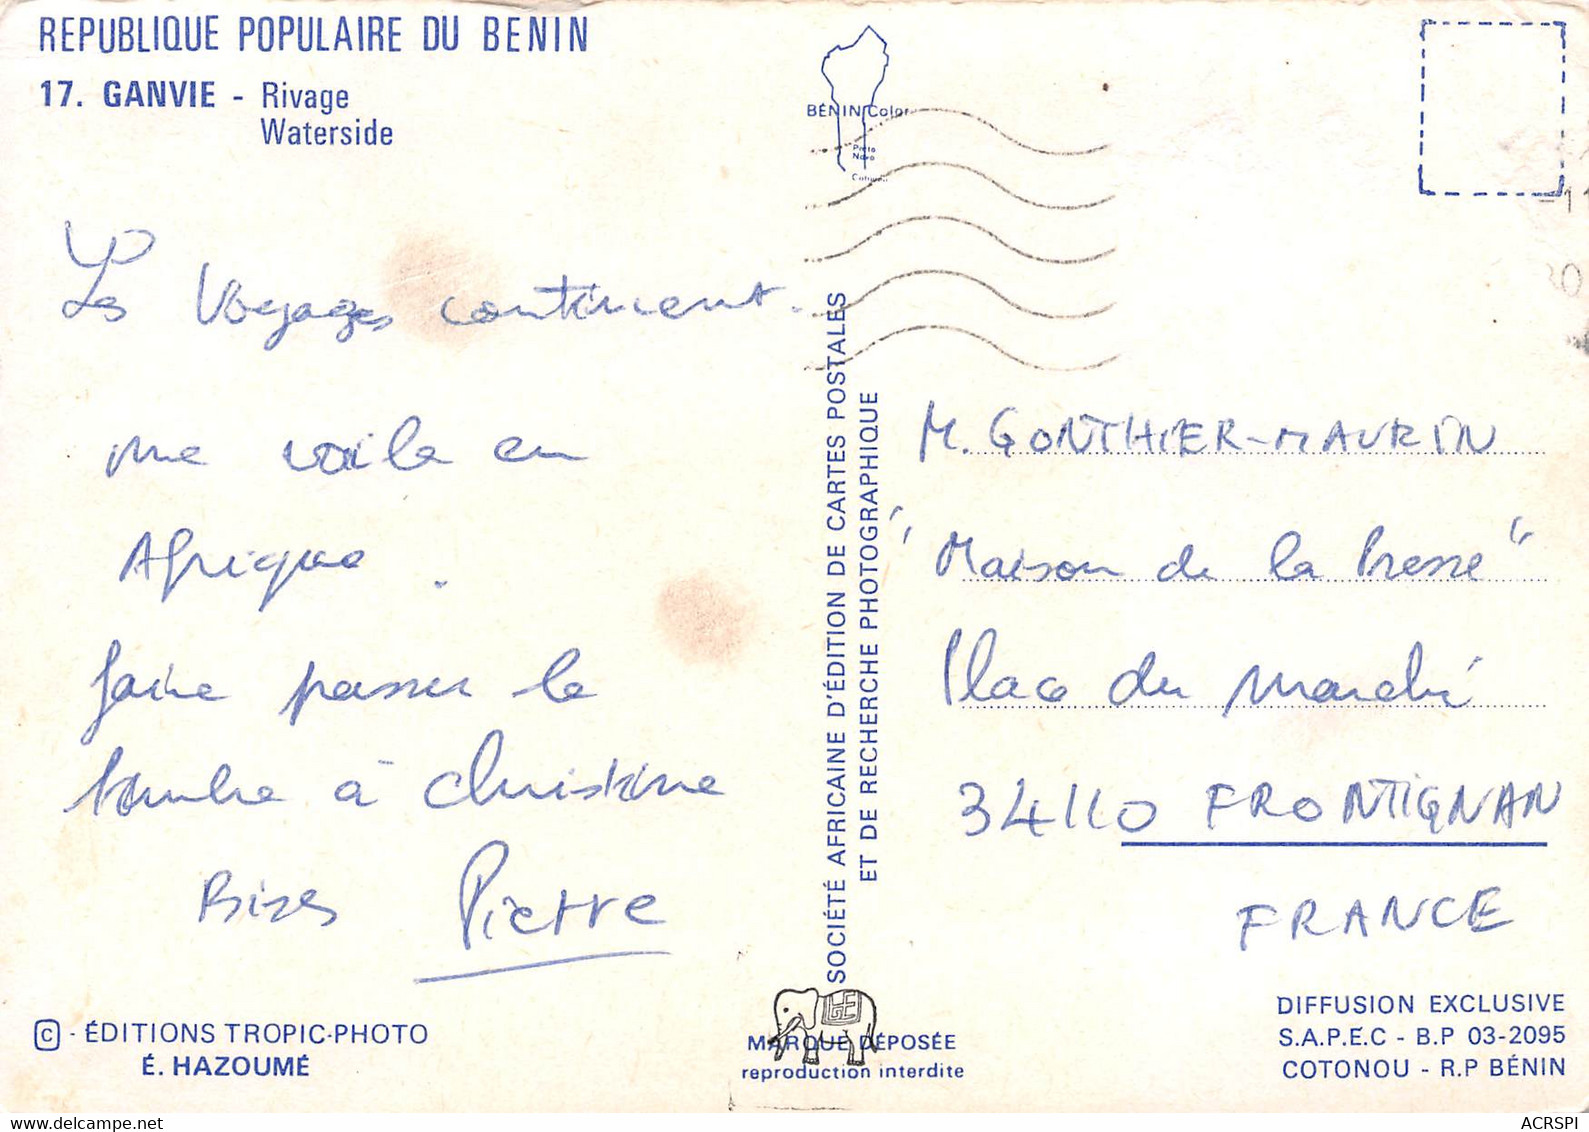 REPUBLIQUE POPULAIRE DU BENIN
17. GANVIE - Rivage
Waterside
BÉNIN Color
Porto
Novo
Cotonou
Les Voyages continuent.
me voila en
Afrique.
faire passer le
timbre à Christine
Bises Pierre
© - ÉDITIONS TROPIC-PHOTO
É. HAZOUMÉ
SOCIÉTÉ AFRICAINE D'ÉDITION DE CARTES POSTALES
ET DE RECHERCHE PHOTOGRAPHIQUE
MARQUE DÉPOSÉE
reproduction interdite
M. GONTHIER-MAURIN
"Maison de la Presse"
Place du Marché
34110 FRONTIGNAN
FRANCE
DIFFUSION EXCLUSIVE
S.A.P.E.C - B.P 03-2095
COTONOU - R.P BÉNIN
ACRSPI